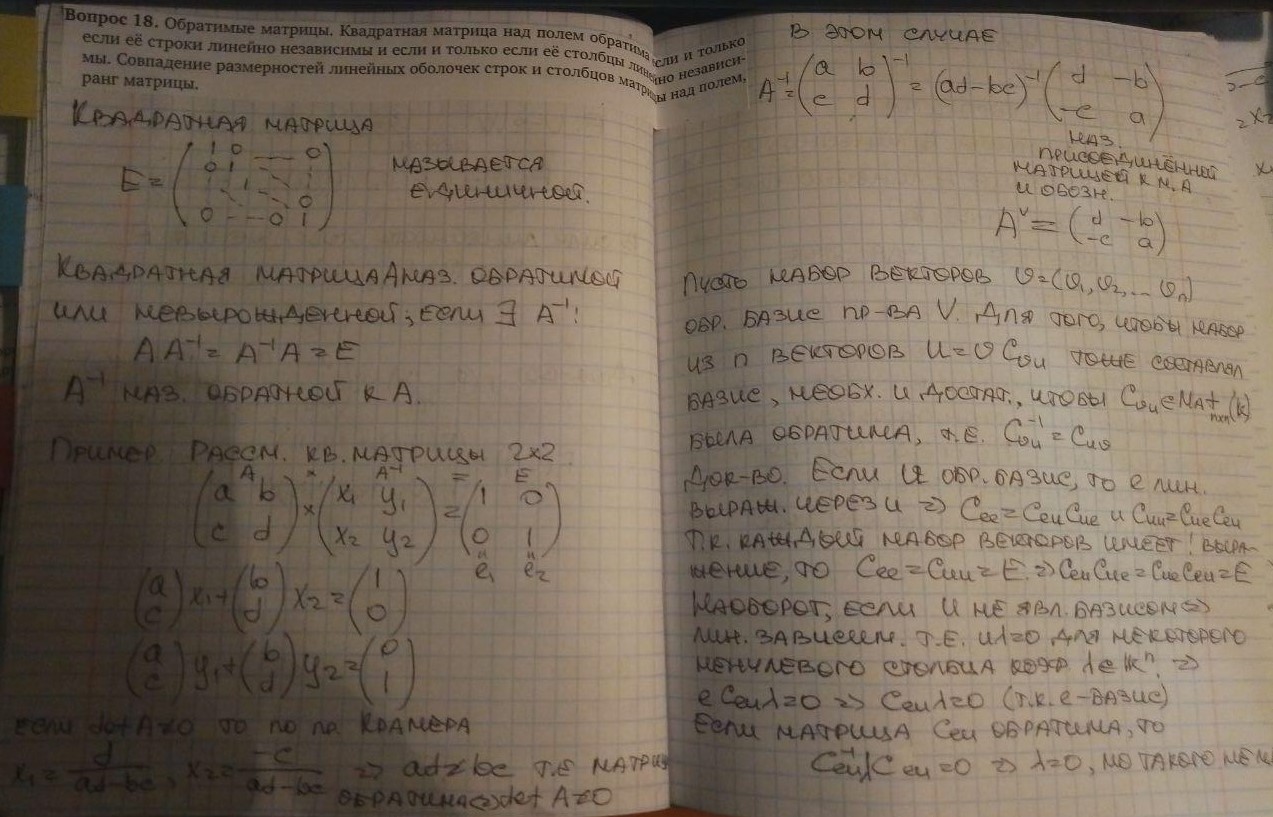 Вопрос 18. Обратимые матрицы. Квадратная матрица над полем обратима если и только
если её строки линейно независимы и если и только если её столбцы линейно независи-
мы. Совпадение размерностей линейных оболочек строк и столбцов матрицы над полем,
ранг матрицы.
КВАДРАТНАЯ МАТРИЦА
E = ( 1 0 — 0
0 1
1
0
0 - - 0 1 )
НАЗЫВАЕТСЯ
ЕДИНИЧНОЙ.
КВАДРАТНАЯ МАТРИЦА A НАЗ. ОБРАТИМОЙ
ИЛИ НЕВЫРОЖДЕННОЙ, ЕСЛИ ∃ A⁻¹:
A A⁻¹ = A⁻¹A = E
A⁻¹ НАЗ. ОБРАТНОЙ К A.
ПРИМЕР. РАССМ. КВ. МАТРИЦЫ 2x2
A × A⁻¹ = E
(a b) × (x₁ y₁) = (1 0)
(c d) (x₂ y₂) (0 1)
e₁ e₂
(a c) x₁ + (b d) x₂ = (1 0)
(a c) y₁ + (b d) y₂ = (0 1)
ЕСЛИ det A≠0 ТО ПО ПР. КРАМЕРА
x₁ = d/(ad-bc), x₂ = -c/(ad-bc) ⇒ ad≠bc Т.Е МАТРИЦ
ОБРАТИМА⇔det A≠0
В ЭТОМ СЛУЧАЕ
A⁻¹ = (a b
c d)⁻¹ = (ad-bc)⁻¹ (d -b
-c a)
НАЗ.
ПРИСОЕДИНЁННОЙ
МАТРИЦЕЙ К М. A
И ОБОЗН.
Aᵛ = (d -b
-c a)
ПУСТЬ НАБОР ВЕКТОРОВ υ=(υ₁, υ₂, ... υₙ)
ОБР. БАЗИС ПР-ВА V. ДЛЯ ТОГО, ЧТОБЫ НАБОР
ИЗ n ВЕКТОРОВ u = υ Cυu ТОЖЕ СОСТАВЛЯЛ
БАЗИС, НЕОБХ. И ДОСТАТ., ЧТОБЫ Cυu ∈ Mat n×n(k)
БЫЛА ОБРАТИМА, Т.Е. Cυu⁻¹ = Cuυ
ДОК-ВО. ЕСЛИ U ОБР. БАЗИС, ТО e ЛИН.
ВЫРАЖ. ЧЕРЕЗ U ⇒ Cee = Ceu Cue и Cuu = Cue Ceu
Т.К. КАЖДЫЙ НАБОР ВЕКТОРОВ ИМЕЕТ ! ВЫРА-
ЖЕНИЕ, ТО Cee = Cuu = E. ⇒ Ceu Cue = Cue Ceu = E
НАОБОРОТ, ЕСЛИ U НЕ ЯВЛ. БАЗИСОМ ⇒
ЛИН. ЗАВИСИМ. Т.Е. uλ=0 ДЛЯ НЕКОТОРОГО
НЕНУЛЕВОГО СТОЛБЦА КОЭФ λ∈𝕜ⁿ. ⇒
e Ceu λ=0 ⇒ Ceu λ=0 (Т.К. e-БАЗИС)
ЕСЛИ МАТРИЦА Ceu ОБРАТИМА, ТО
Ceu⁻¹ | Ceu = 0 ⇒ λ=0, НО ТАКОГО НЕ М